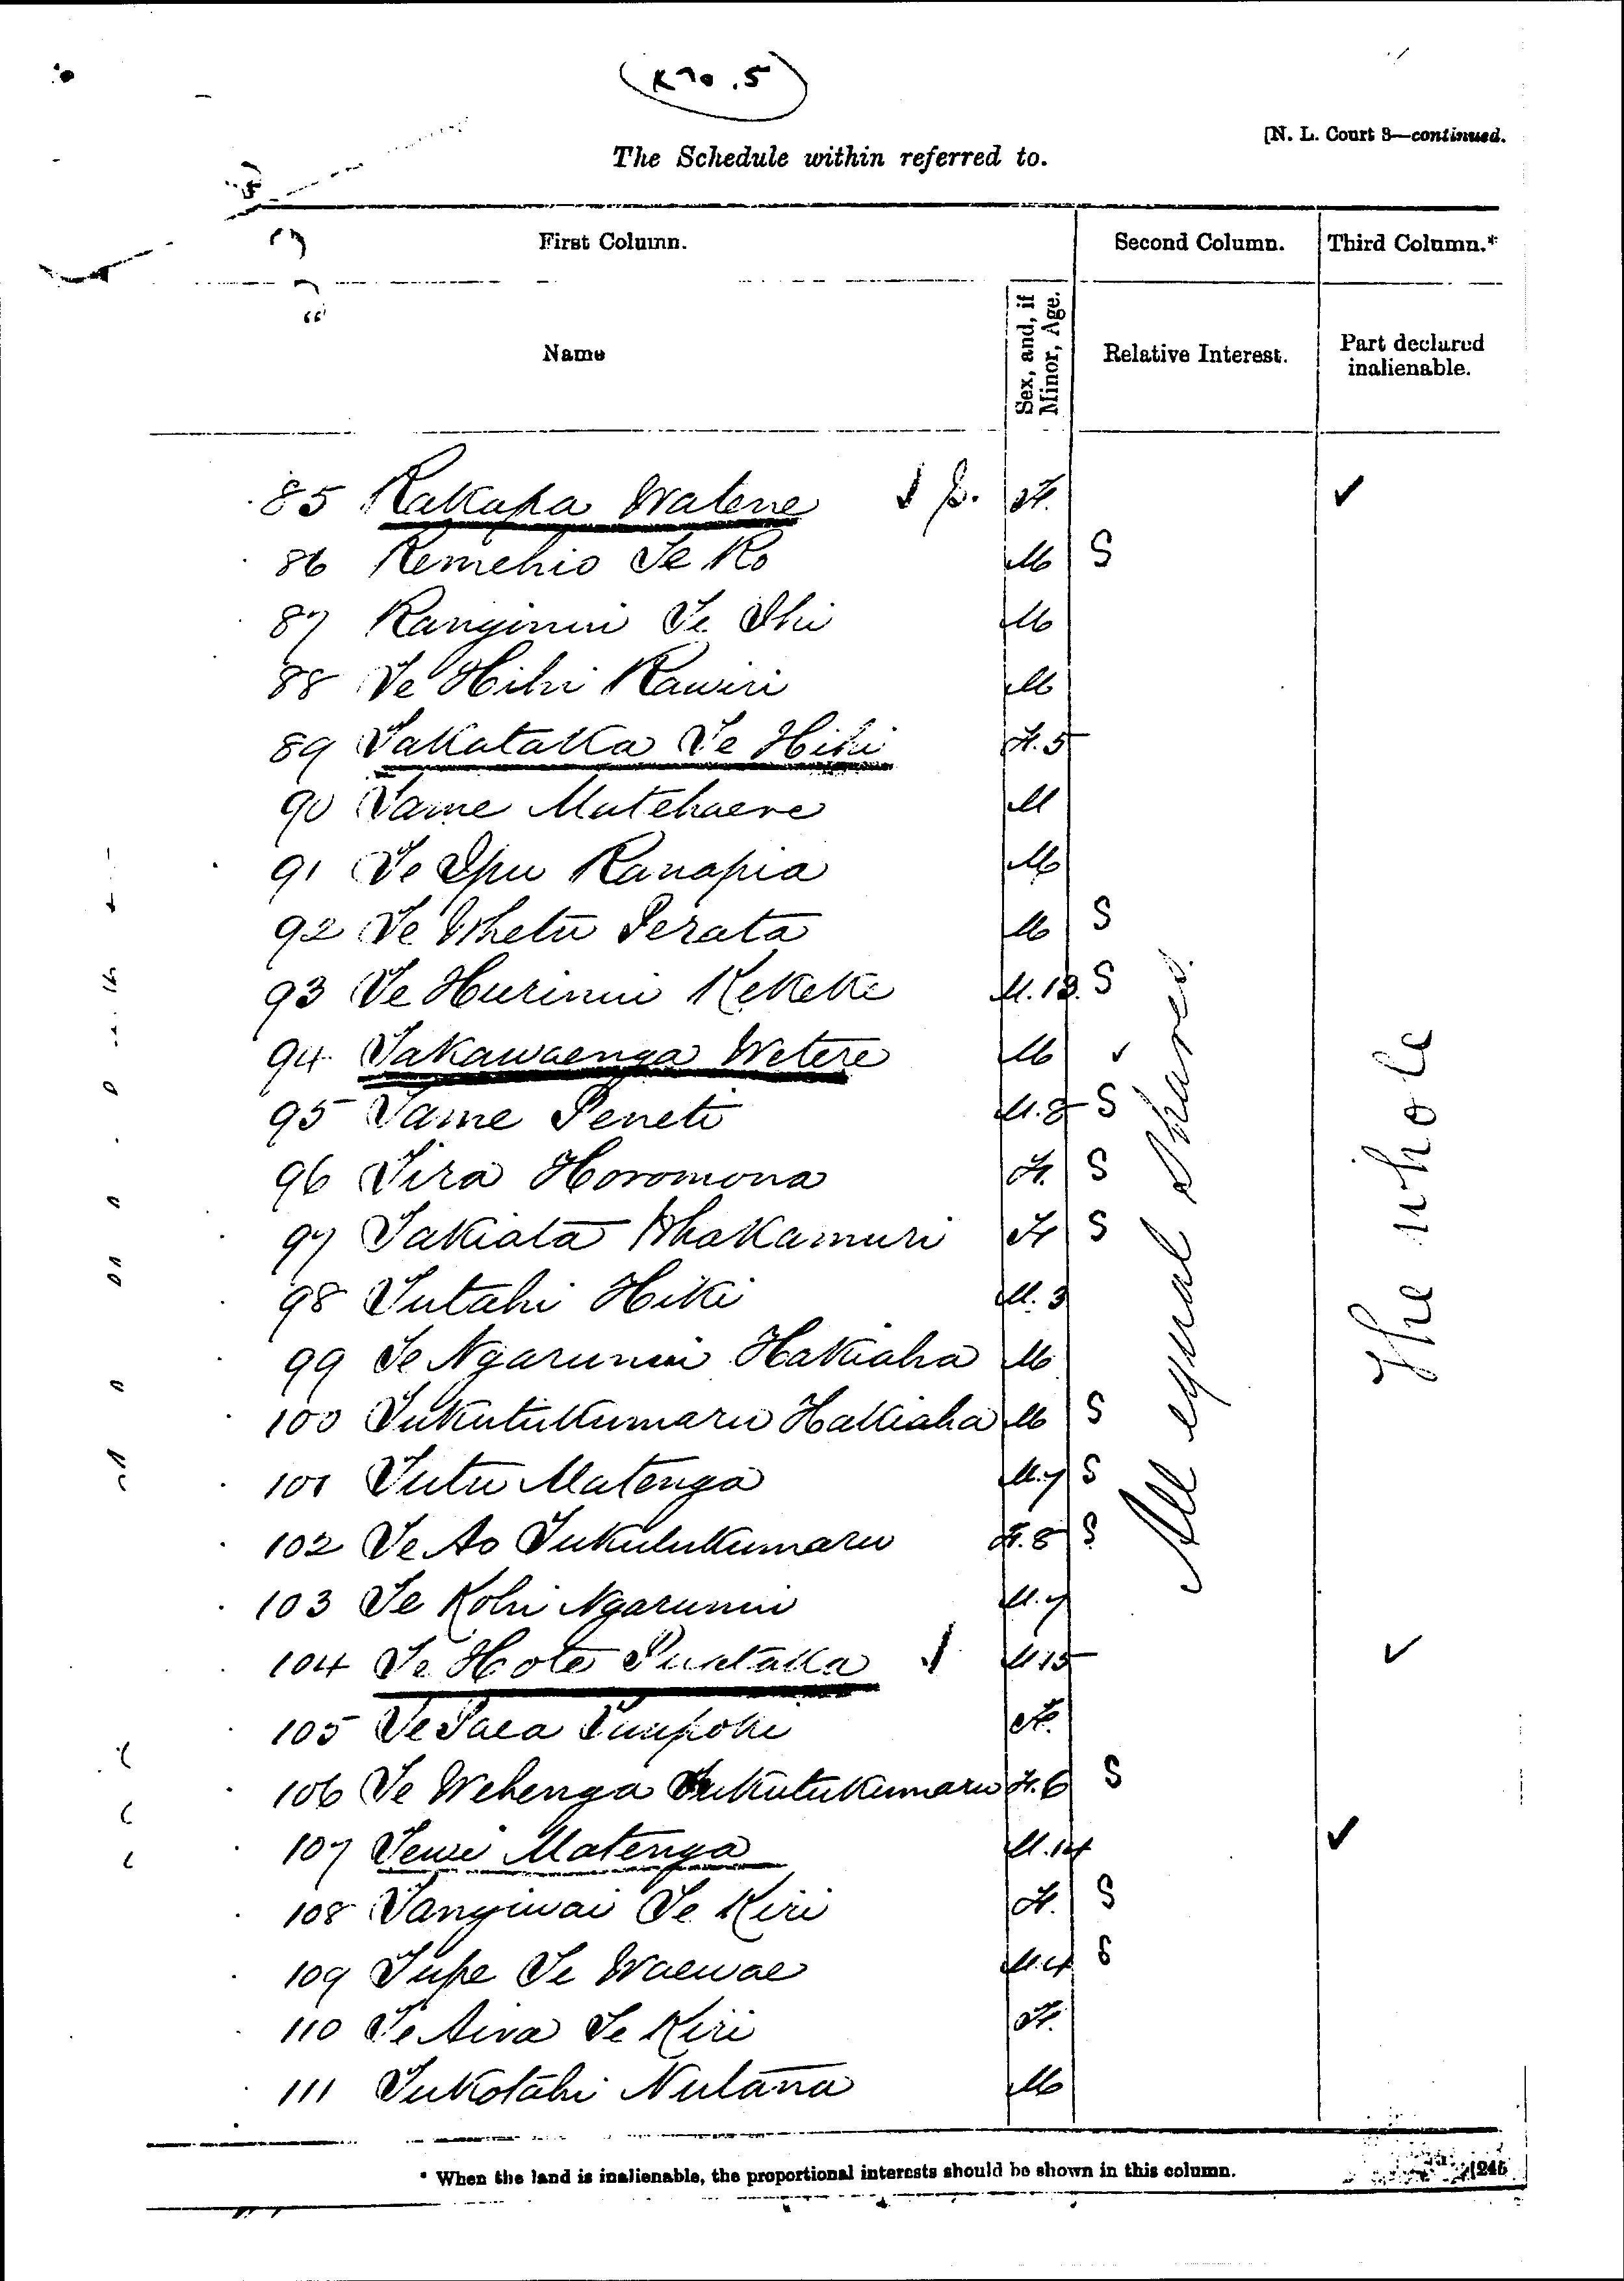 (No. 5)
[N. L. Court 8—continued.
The Schedule within referred to.
First Column. Second Column. Third Column.*
Name Sex, and, if Minor, Age. Relative Interest. Part declared inalienable.
85 Rakapa Watene ✓ F. ✓
86 Remehio Te Ro M S
87 Ranginui Te Ihi M
88 Te Hihi Rawiri M
89 Takataka Te Hihi F. 5
90 Tame Matehaere M
91 Te Ipu Ranapia M
92 Te Whetu Perata M S
93 Te Hurinui Kekeke M. 13. S
94 Takawaenga Wetere M ✓
95 Tame Peneti M. 8 S
96 Tira Horomona F. S
97 Takiata Whakamuri F S
98 Tutahi Hiki M. 3
99 Te Ngarunui Hakiaha M
100 Tukutukumaru Hakiaha M S
101 Tutu Matenga M. 7 S
102 Te Ao Tukutukumaru F. 8 S
103 Te Kohi Ngarunui M. 7
104 Te Hote Puataka ✓ M 15 ✓
105 Te Paea Tuupoki F.
106 Te Wehenga Tukutukumaru F. 6 S
107 Tewi Matenga M. 14 ✓
108 Tangiwai Te Kiri F. S
109 Tupe Te Waewae M. 4 S
110 Te Aira Te Kiri F.
111 Tukotahi Nutana M
All equal shares.
The whole
* When the land is inalienable, the proportional interests should be shown in this column.